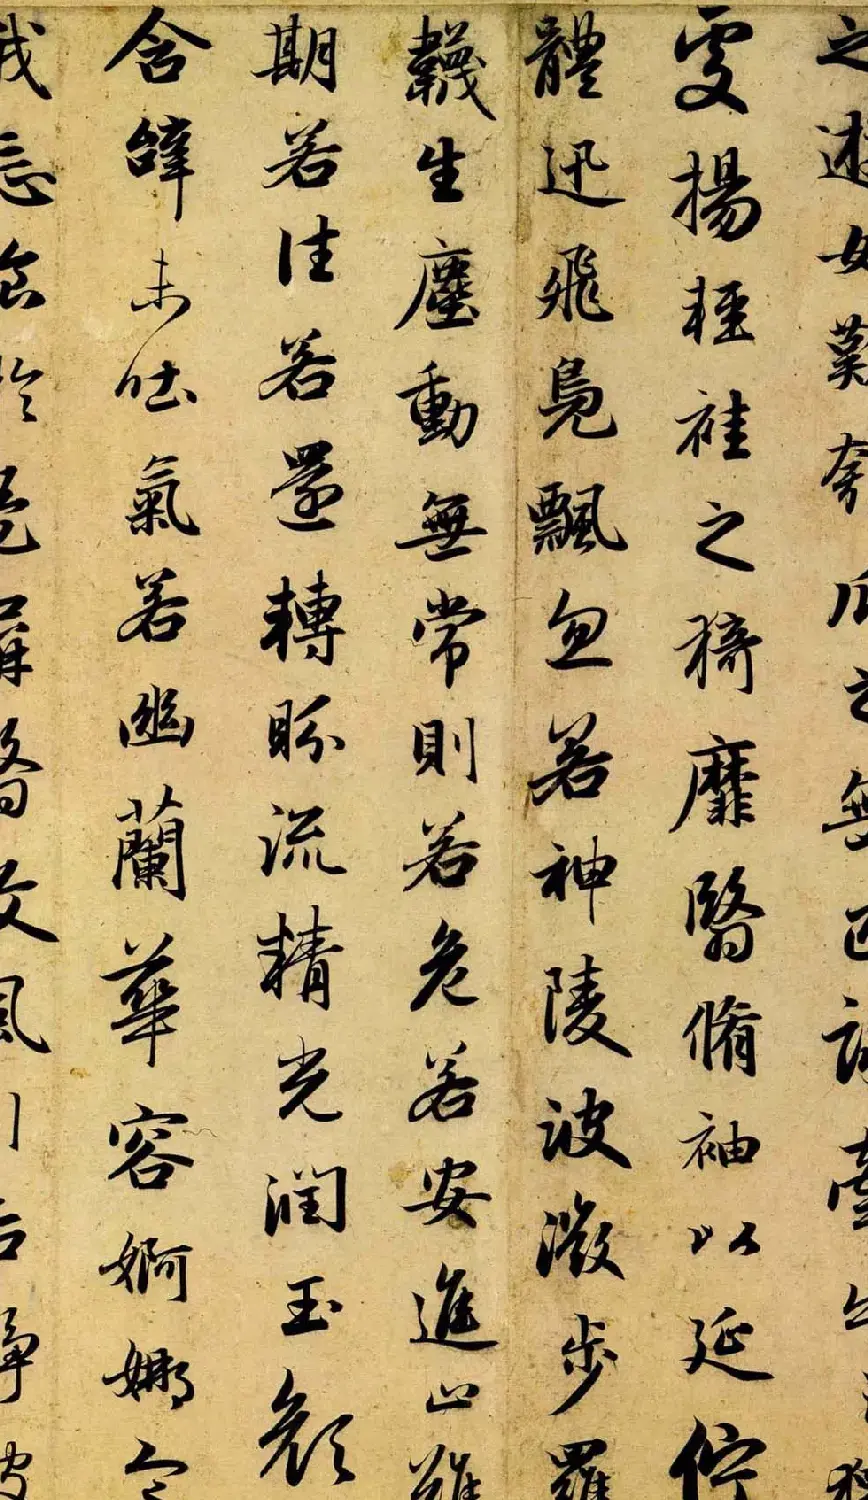 之遊女歎匏瓜之無匹詠牽牛之獨
處揚輕袿之猗靡翳脩袖以延佇
體迅飛鳧飄忽若神陵波微步羅
韈生塵動無常則若危若安進止難
期若往若還轉眄流精光潤玉顏
含辭未吐氣若幽蘭華容婀娜令
我忘於是屏翳收風川后靜波